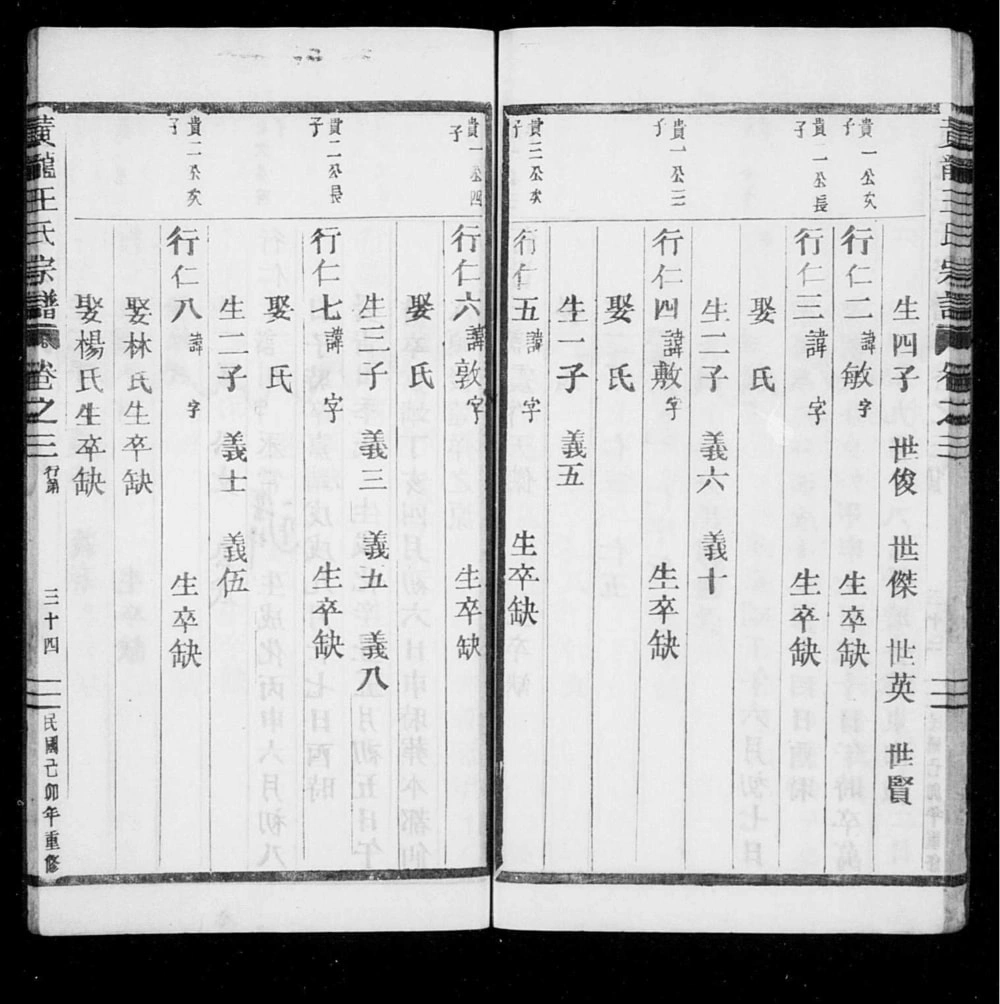 黃龍王氏宗譜 卷之三
生四子 世俊 世傑 世英 世賢
貴一公次子
行仁二諱敏字 生卒缺
貴二公長子
行仁三諱 字 生卒缺
娶 氏
生二子 義六 義十
貴一公三子
行仁四諱敷字 生卒缺
娶 氏
生一子 義五
貴三公次子
行仁五諱 字 生卒缺
貴一公四子
行仁六諱敦字 生卒缺
娶 氏
生三子 義三 義五 義八
貴二公長子
行仁七諱 字 生卒缺
娶 氏
生二子 義士 義伍
貴二公次子
行仁八諱 字 生卒缺
娶林氏生卒缺
娶楊氏生卒缺
黃龍王氏宗譜 卷之三 行第 三十四 民國己卯年重修